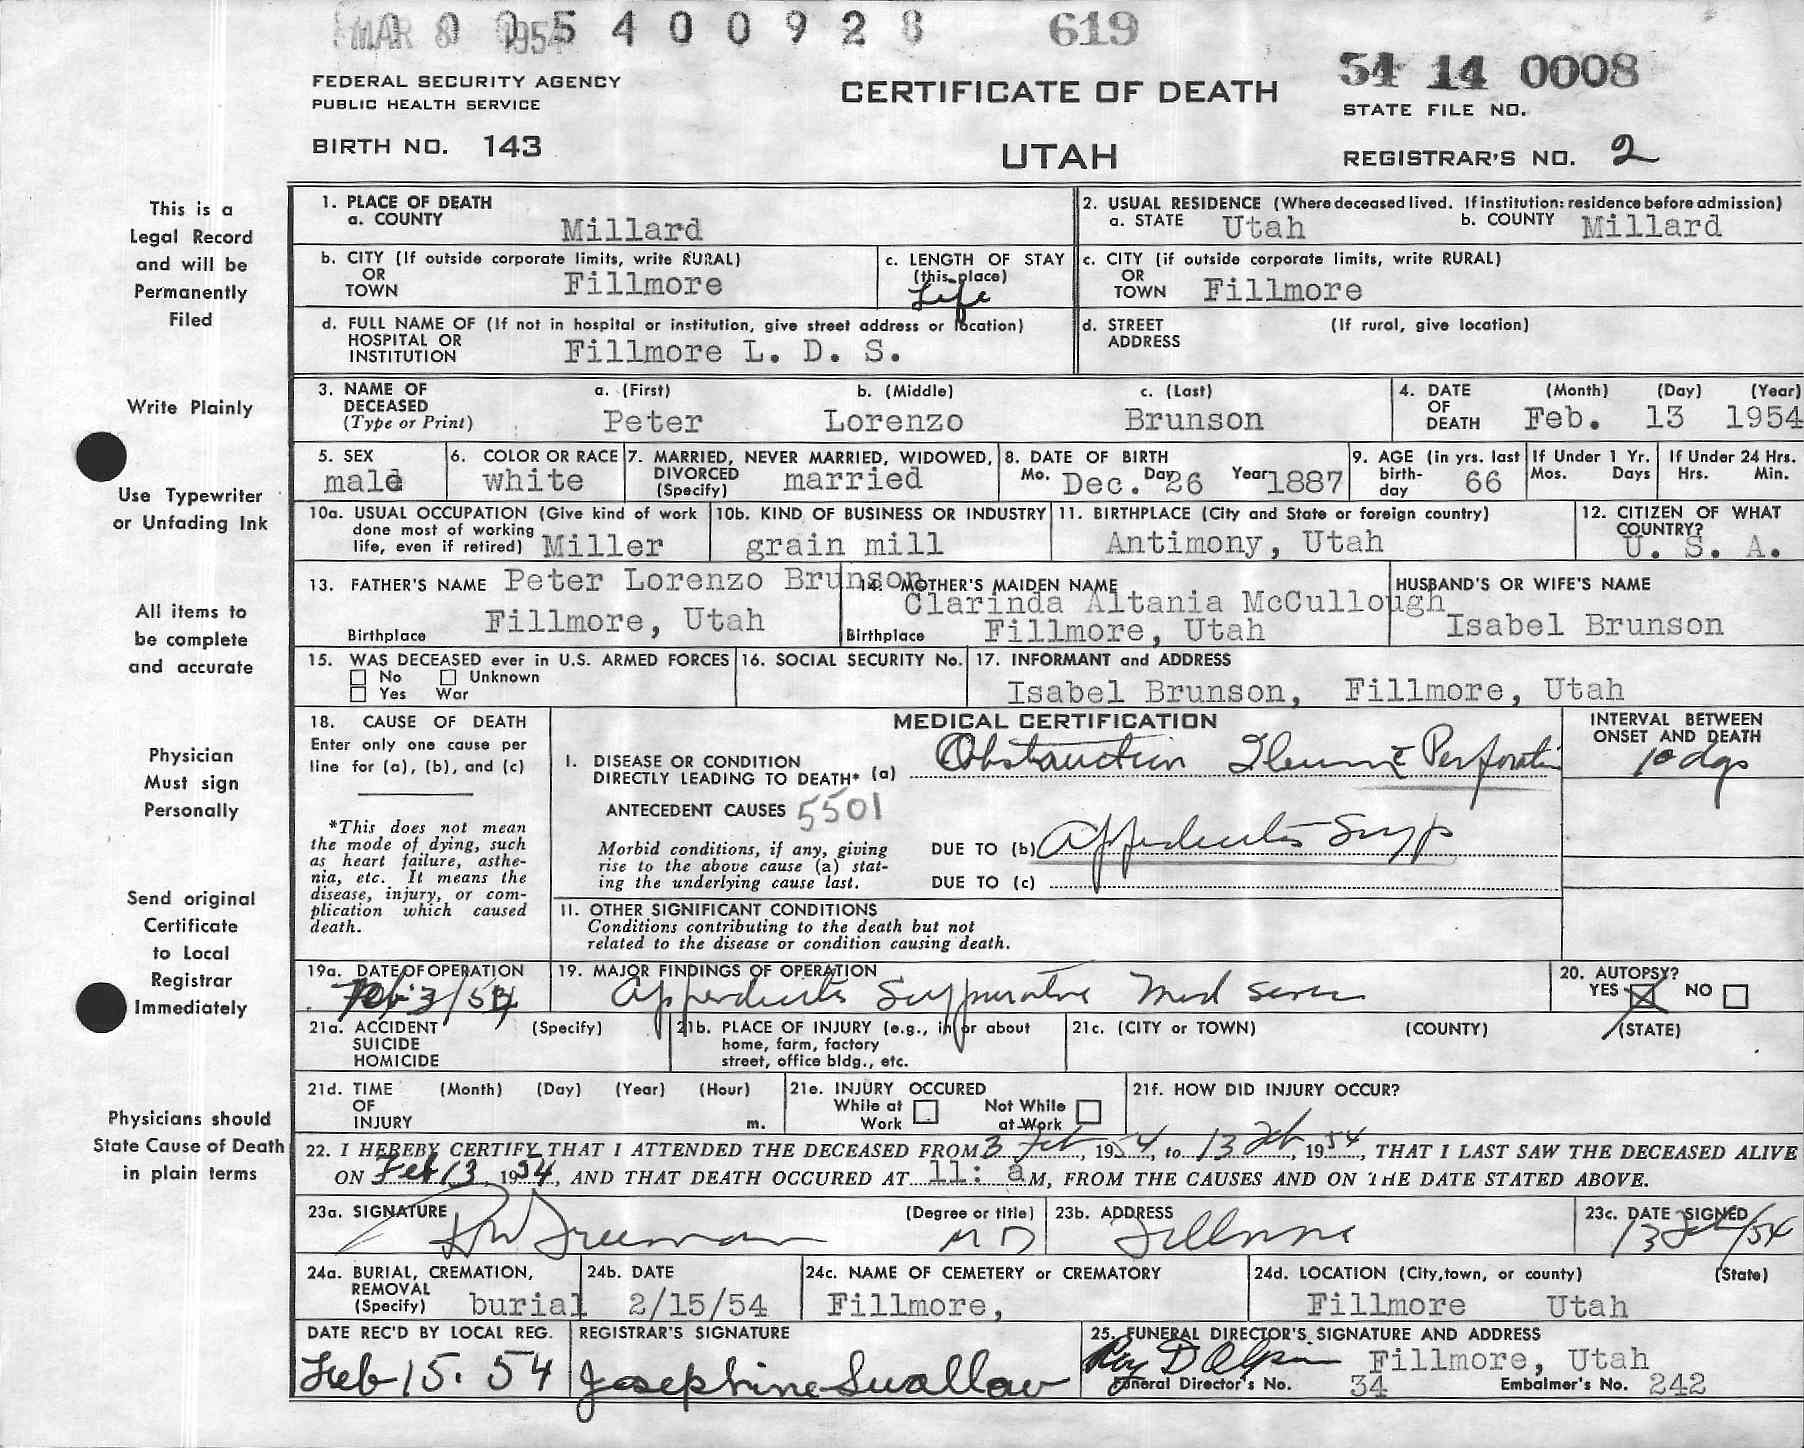 MAR 8 1954
0 0 5 4 0 0 9 2 8
619
54 14 0008
FEDERAL SECURITY AGENCY
PUBLIC HEALTH SERVICE
CERTIFICATE OF DEATH
STATE FILE NO.
BIRTH NO. 143
UTAH
REGISTRAR'S NO. 2
This is a
Legal Record
and will be
Permanently
Filed
Write Plainly
Use Typewriter
or Unfading Ink
All items to
be complete
and accurate
Physician
Must sign
Personally
Send original
Certificate
to Local
Registrar
Immediately
Physicians should
State Cause of Death
in plain terms
1. PLACE OF DEATH
a. COUNTY Millard
2. USUAL RESIDENCE (Where deceased lived. If institution: residence before admission)
a. STATE Utah b. COUNTY Millard
b. CITY (If outside corporate limits, write RURAL)
OR
TOWN Fillmore
c. LENGTH OF STAY
(this place)
Life
c. CITY (if outside corporate limits, write RURAL)
OR
TOWN Fillmore
d. FULL NAME OF (If not in hospital or institution, give street address or location)
HOSPITAL OR
INSTITUTION Fillmore L. D. S.
d. STREET (If rural, give location)
ADDRESS
3. NAME OF DECEASED (Type or Print)
a. (First) b. (Middle) c. (Last)
Peter Lorenzo Brunson
4. DATE OF DEATH (Month) (Day) (Year)
Feb. 13 1954
5. SEX
male
6. COLOR OR RACE
white
7. MARRIED, NEVER MARRIED, WIDOWED,
DIVORCED (Specify) married
8. DATE OF BIRTH
Mo. Dec. Day 26 Year 1887
9. AGE (in yrs. last birth-day 66
If Under 1 Yr.
Mos. Days
If Under 24 Hrs.
Hrs. Min.
10a. USUAL OCCUPATION (Give kind of work
done most of working
life, even if retired) Miller
10b. KIND OF BUSINESS OR INDUSTRY
grain mill
11. BIRTHPLACE (City and State or foreign country)
Antimony, Utah
12. CITIZEN OF WHAT
COUNTRY?
U. S. A.
13. FATHER'S NAME Peter Lorenzo Brunson
Birthplace Fillmore, Utah
14. MOTHER'S MAIDEN NAME
Clarinda Altania McCullough
Birthplace Fillmore, Utah
HUSBAND'S OR WIFE'S NAME
Isabel Brunson
15. WAS DECEASED ever in U.S. ARMED FORCES
No Unknown
Yes War
16. SOCIAL SECURITY No.
17. INFORMANT and ADDRESS
Isabel Brunson, Fillmore, Utah
18. CAUSE OF DEATH
Enter only one cause per
line for (a), (b), and (c)
*This does not mean
the mode of dying, such
as heart failure, asthe-
nia, etc. It means the
disease, injury, or com-
plication which caused
death.
MEDICAL CERTIFICATION
INTERVAL BETWEEN
ONSET AND DEATH
I. DISEASE OR CONDITION
DIRECTLY LEADING TO DEATH* (a) Obstruction Ileum c̄ Perforation
10 dys
ANTECEDENT CAUSES 5501
Morbid conditions, if any, giving
rise to the above cause (a) stat-
ing the underlying cause last.
DUE TO (b) Appendicitis Supp
DUE TO (c)
11. OTHER SIGNIFICANT CONDITIONS
Conditions contributing to the death but not
related to the disease or condition causing death.
19a. DATE OF OPERATION
Feb 3/54
19. MAJOR FINDINGS OF OPERATION
Appendicitis Suppurative
20. AUTOPSY?
YES X NO
21a. ACCIDENT (Specify)
SUICIDE
HOMICIDE
21b. PLACE OF INJURY (e.g., in or about
home, farm, factory
street, office bldg., etc.
21c. (CITY or TOWN) (COUNTY) (STATE)
21d. TIME (Month) (Day) (Year) (Hour)
OF
INJURY m.
21e. INJURY OCCURED
While at Work Not While at Work
21f. HOW DID INJURY OCCUR?
22. I HEREBY CERTIFY THAT I ATTENDED THE DECEASED FROM 3 Feb, 1954, to 13 Feb, 1954, THAT I LAST SAW THE DECEASED ALIVE
ON Feb 13, 1954, AND THAT DEATH OCCURED AT 11: aM, FROM THE CAUSES AND ON THE DATE STATED ABOVE.
23a. SIGNATURE (Degree or title)
Freeman MD
23b. ADDRESS
Fillmore
23c. DATE SIGNED
13 Feb/54
24a. BURIAL, CREMATION,
REMOVAL
(Specify) burial
24b. DATE
2/15/54
24c. NAME OF CEMETERY or CREMATORY
Fillmore,
24d. LOCATION (City, town, or county) (State)
Fillmore Utah
DATE REC'D BY LOCAL REG.
Feb 15. 54
REGISTRAR'S SIGNATURE
Josephine Swallow
25. FUNERAL DIRECTOR'S SIGNATURE AND ADDRESS
Fillmore, Utah
Funeral Director's No. 34 Embalmer's No. 242